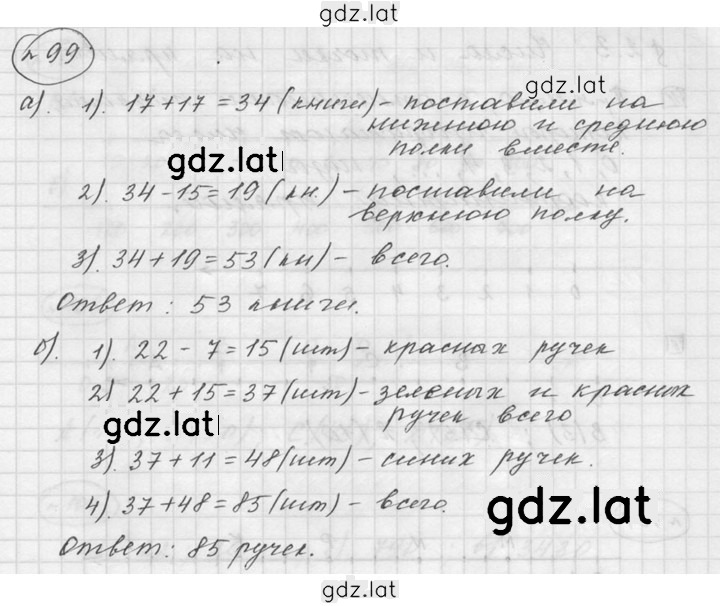 gdz.lat
№ 99
а). 1). 17+17=34 (книги) - поставили на
gdz.lat
нижнюю и среднюю
полки вместе.
gdz.lat
2). 34-15=19 (кн.) - поставили на
верхнюю полку.
3). 34+19=53 (кн) - всего.
Ответ: 53 книги.
б). 1). 22 - 7=15 (шт) - красных ручек
2) 22+15=37 (шт) - зеленых и красных
ручек всего
gdz.lat
3). 37+11=48 (шт) - синих ручек.
4). 37+48=85 (шт) - всего.
gdz.lat
Ответ: 85 ручек.
gdz.lat